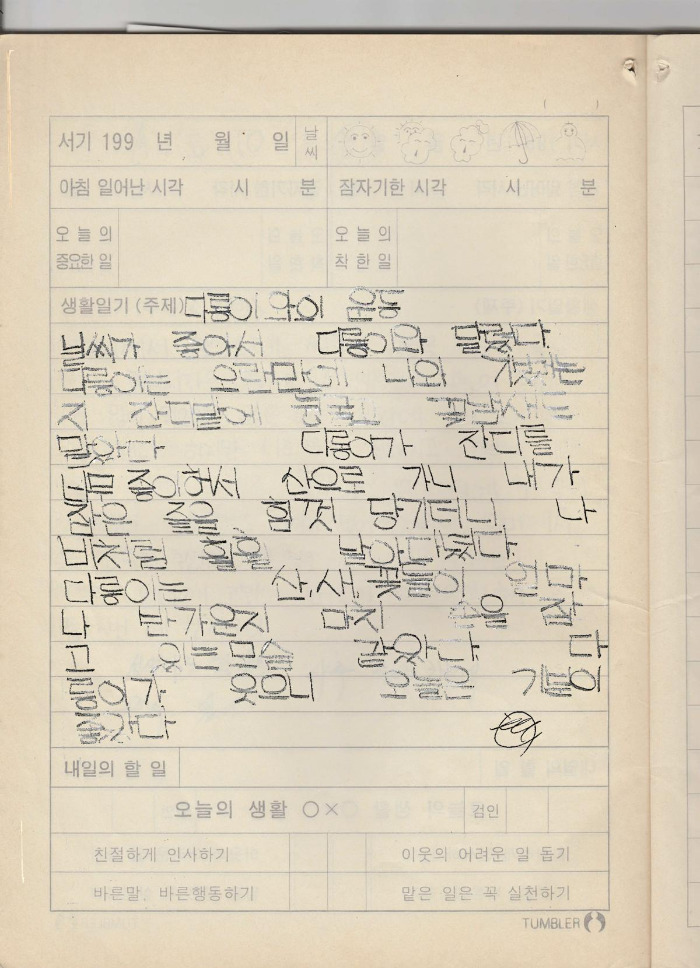 서기 199 년 월 일 날씨
아침 일어난 시각 시 분 잠자기한 시각 시 분
오늘의 중요한 일 오늘의 착한 일
생활일기 (주제) 다롱이 와의 운동
날씨가 좋아서 다롱이와 달렸다
다롱이는 오랜만에 나와
지 잔디밭에
다롱이가 잔디를
너무 좋아해서 산으로 가니 내가
잡은 줄을 힘껏 당기더니 나
비처럼 훨훨 날아다녔다
다롱이는 산,새,꽃들이 얼마
나 반가운지 마치 춤을 추
고 있는 모습 같았다 다
롱이가 웃으니 오늘은 기분이
좋았다
내일의 할 일
오늘의 생활 ○× 검인
친절하게 인사하기 이웃의 어려운 일 돕기
바른말, 바른행동하기 맡은 일은 꼭 실천하기
TUMBLER